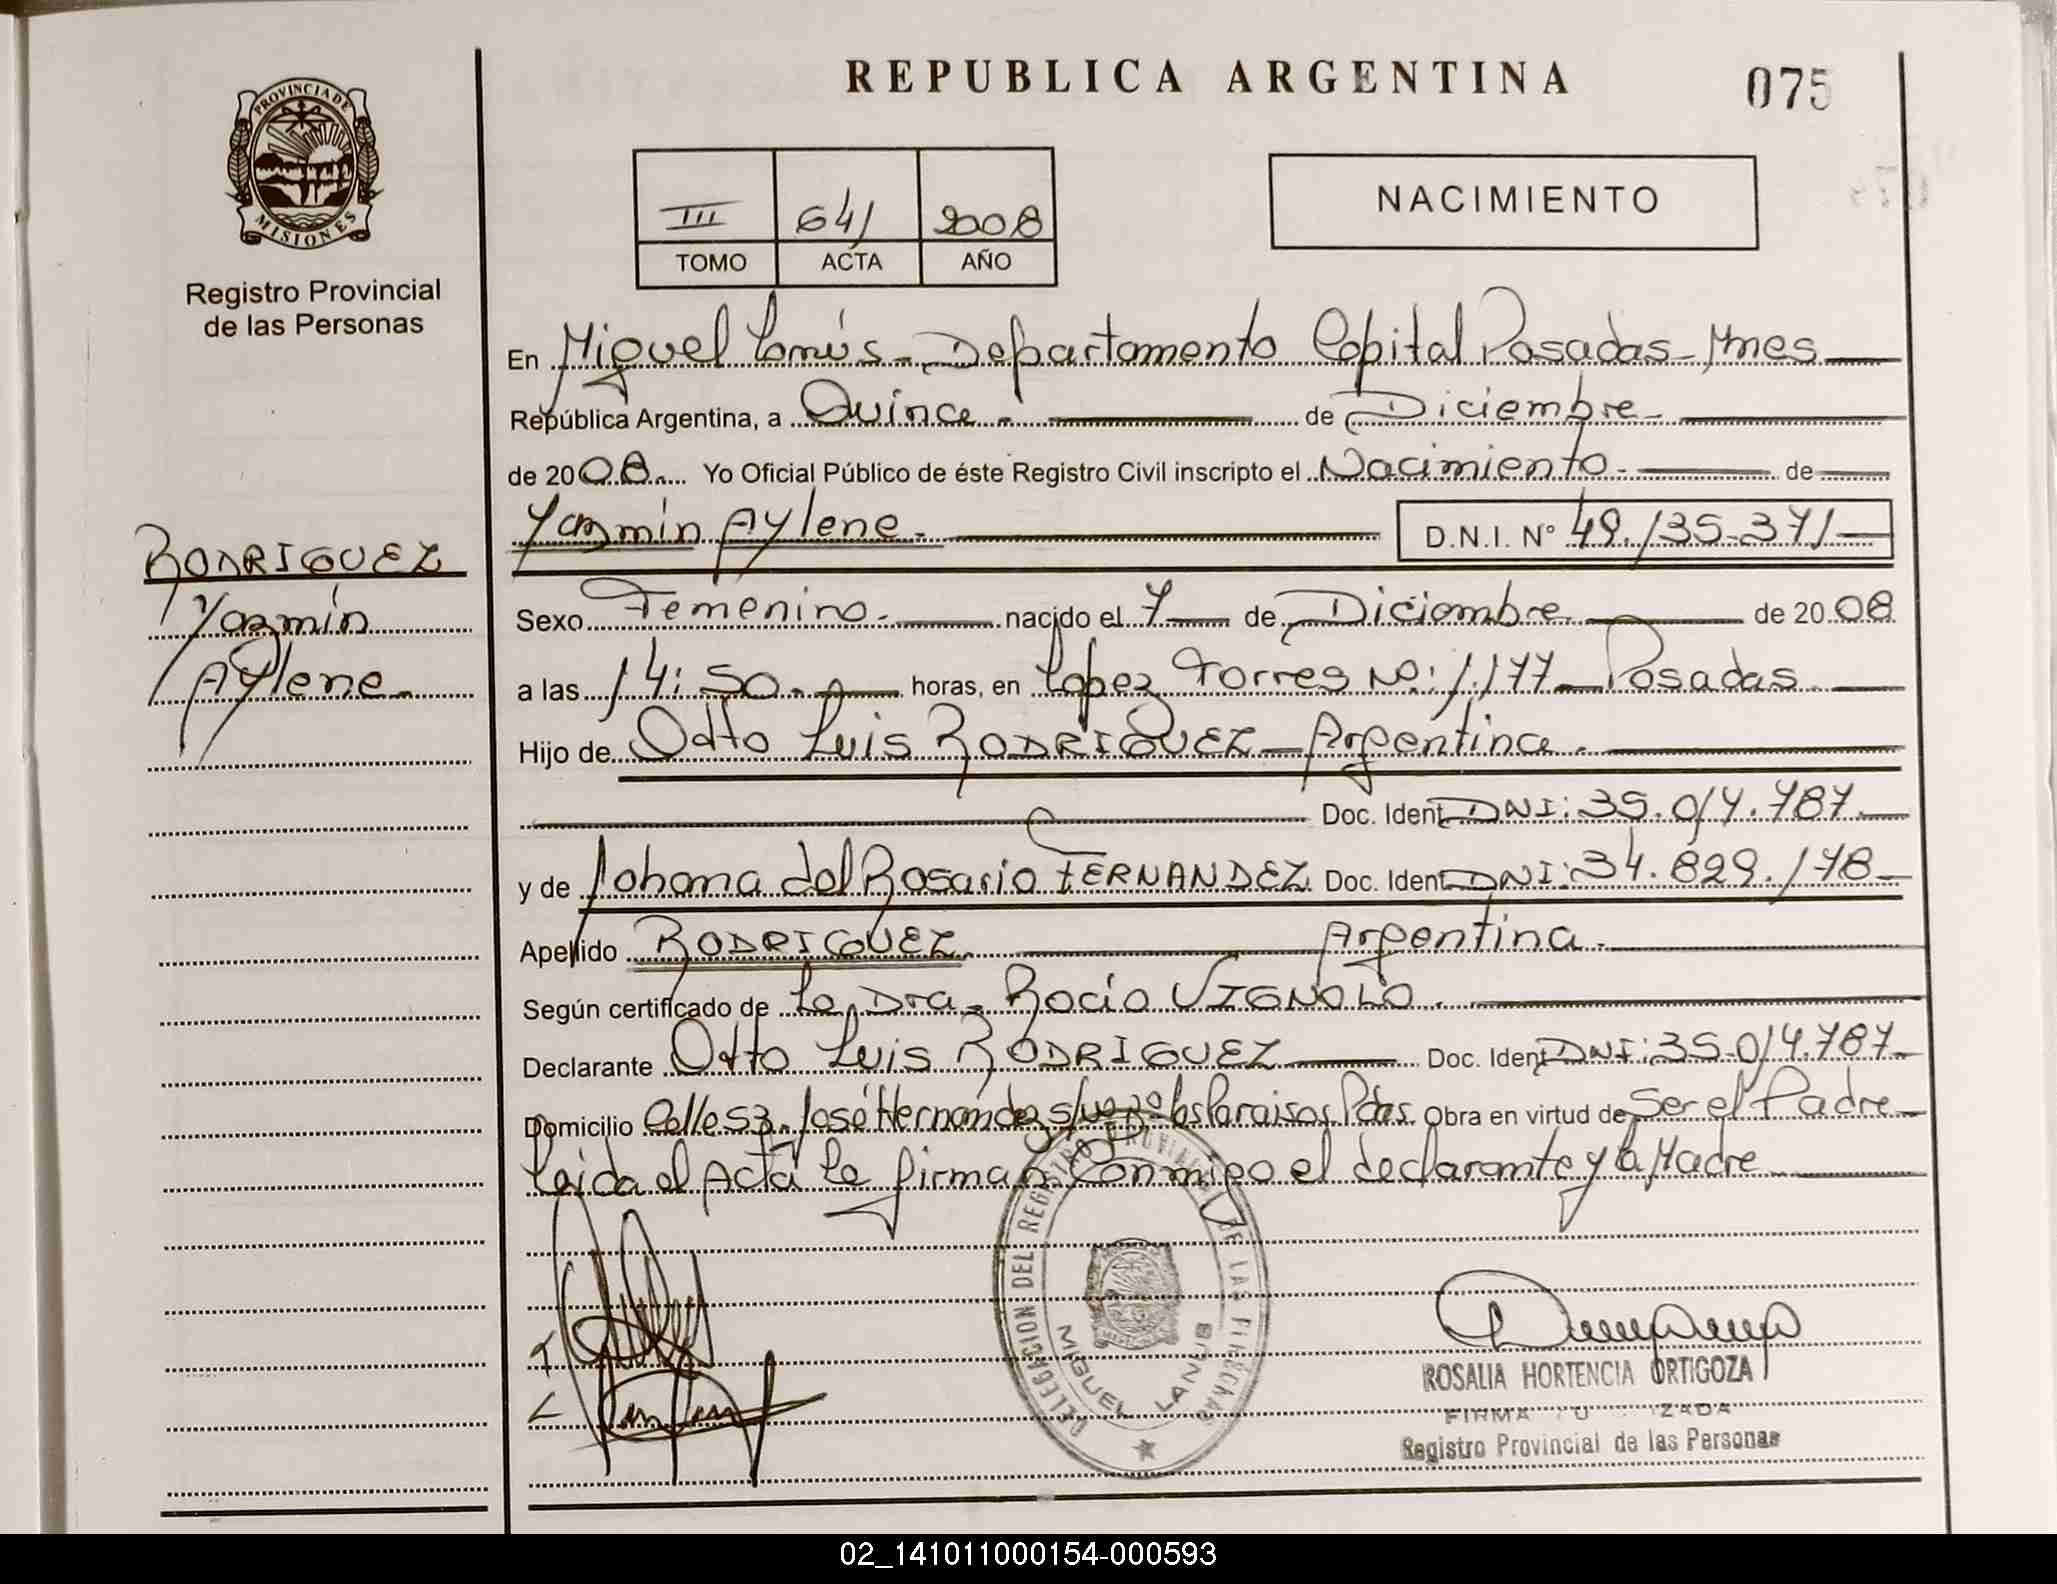 REPUBLICA ARGENTINA
075
PROVINCIA DE
MISIONES
Registro Provincial
de las Personas
III 641 2008
TOMO ACTA AÑO
NACIMIENTO
En Miguel Lanús - Departamento Capital Posadas - Mnes
República Argentina, a Quince - de Diciembre -
de 2008. Yo Oficial Público de éste Registro Civil inscripto el Nacimiento - de
Yazmín Aylene - D.N.I. Nº 49.135.371
RODRIGUEZ
Yazmín
Aylene -
Sexo Femenino - nacido el 7 de Diciembre de 2008
a las 14:50 - horas, en Lopez Torres Nº: 1.177 - Posadas
Hijo de Otto Luis RODRIGUEZ - Argentina -
Doc. Ident DNI: 35.017.787
y de Johana del Rosario FERNANDEZ Doc. Ident DNI: 34.829.178 -
Apellido RODRIGUEZ - Argentina -
Según certificado de La Dra. Rocío VIGNOLO -
Declarante Otto Luis RODRIGUEZ Doc. Ident DNI: 35.017.787
Domicilio Calle 53 - José Hernández Los Paraisos, Pdas. Obra en virtud de Ser el Padre
Leida el Acta la firman Conmigo el declarante y la Madre
DELEGACION DEL REGISTRO PROVINCIAL DE LAS PERSONAS
MIGUEL LANUS
ROSALIA HORTENCIA ORTIGOZA
FIRMA
Registro Provincial de las Personas
02_141011000154-000593